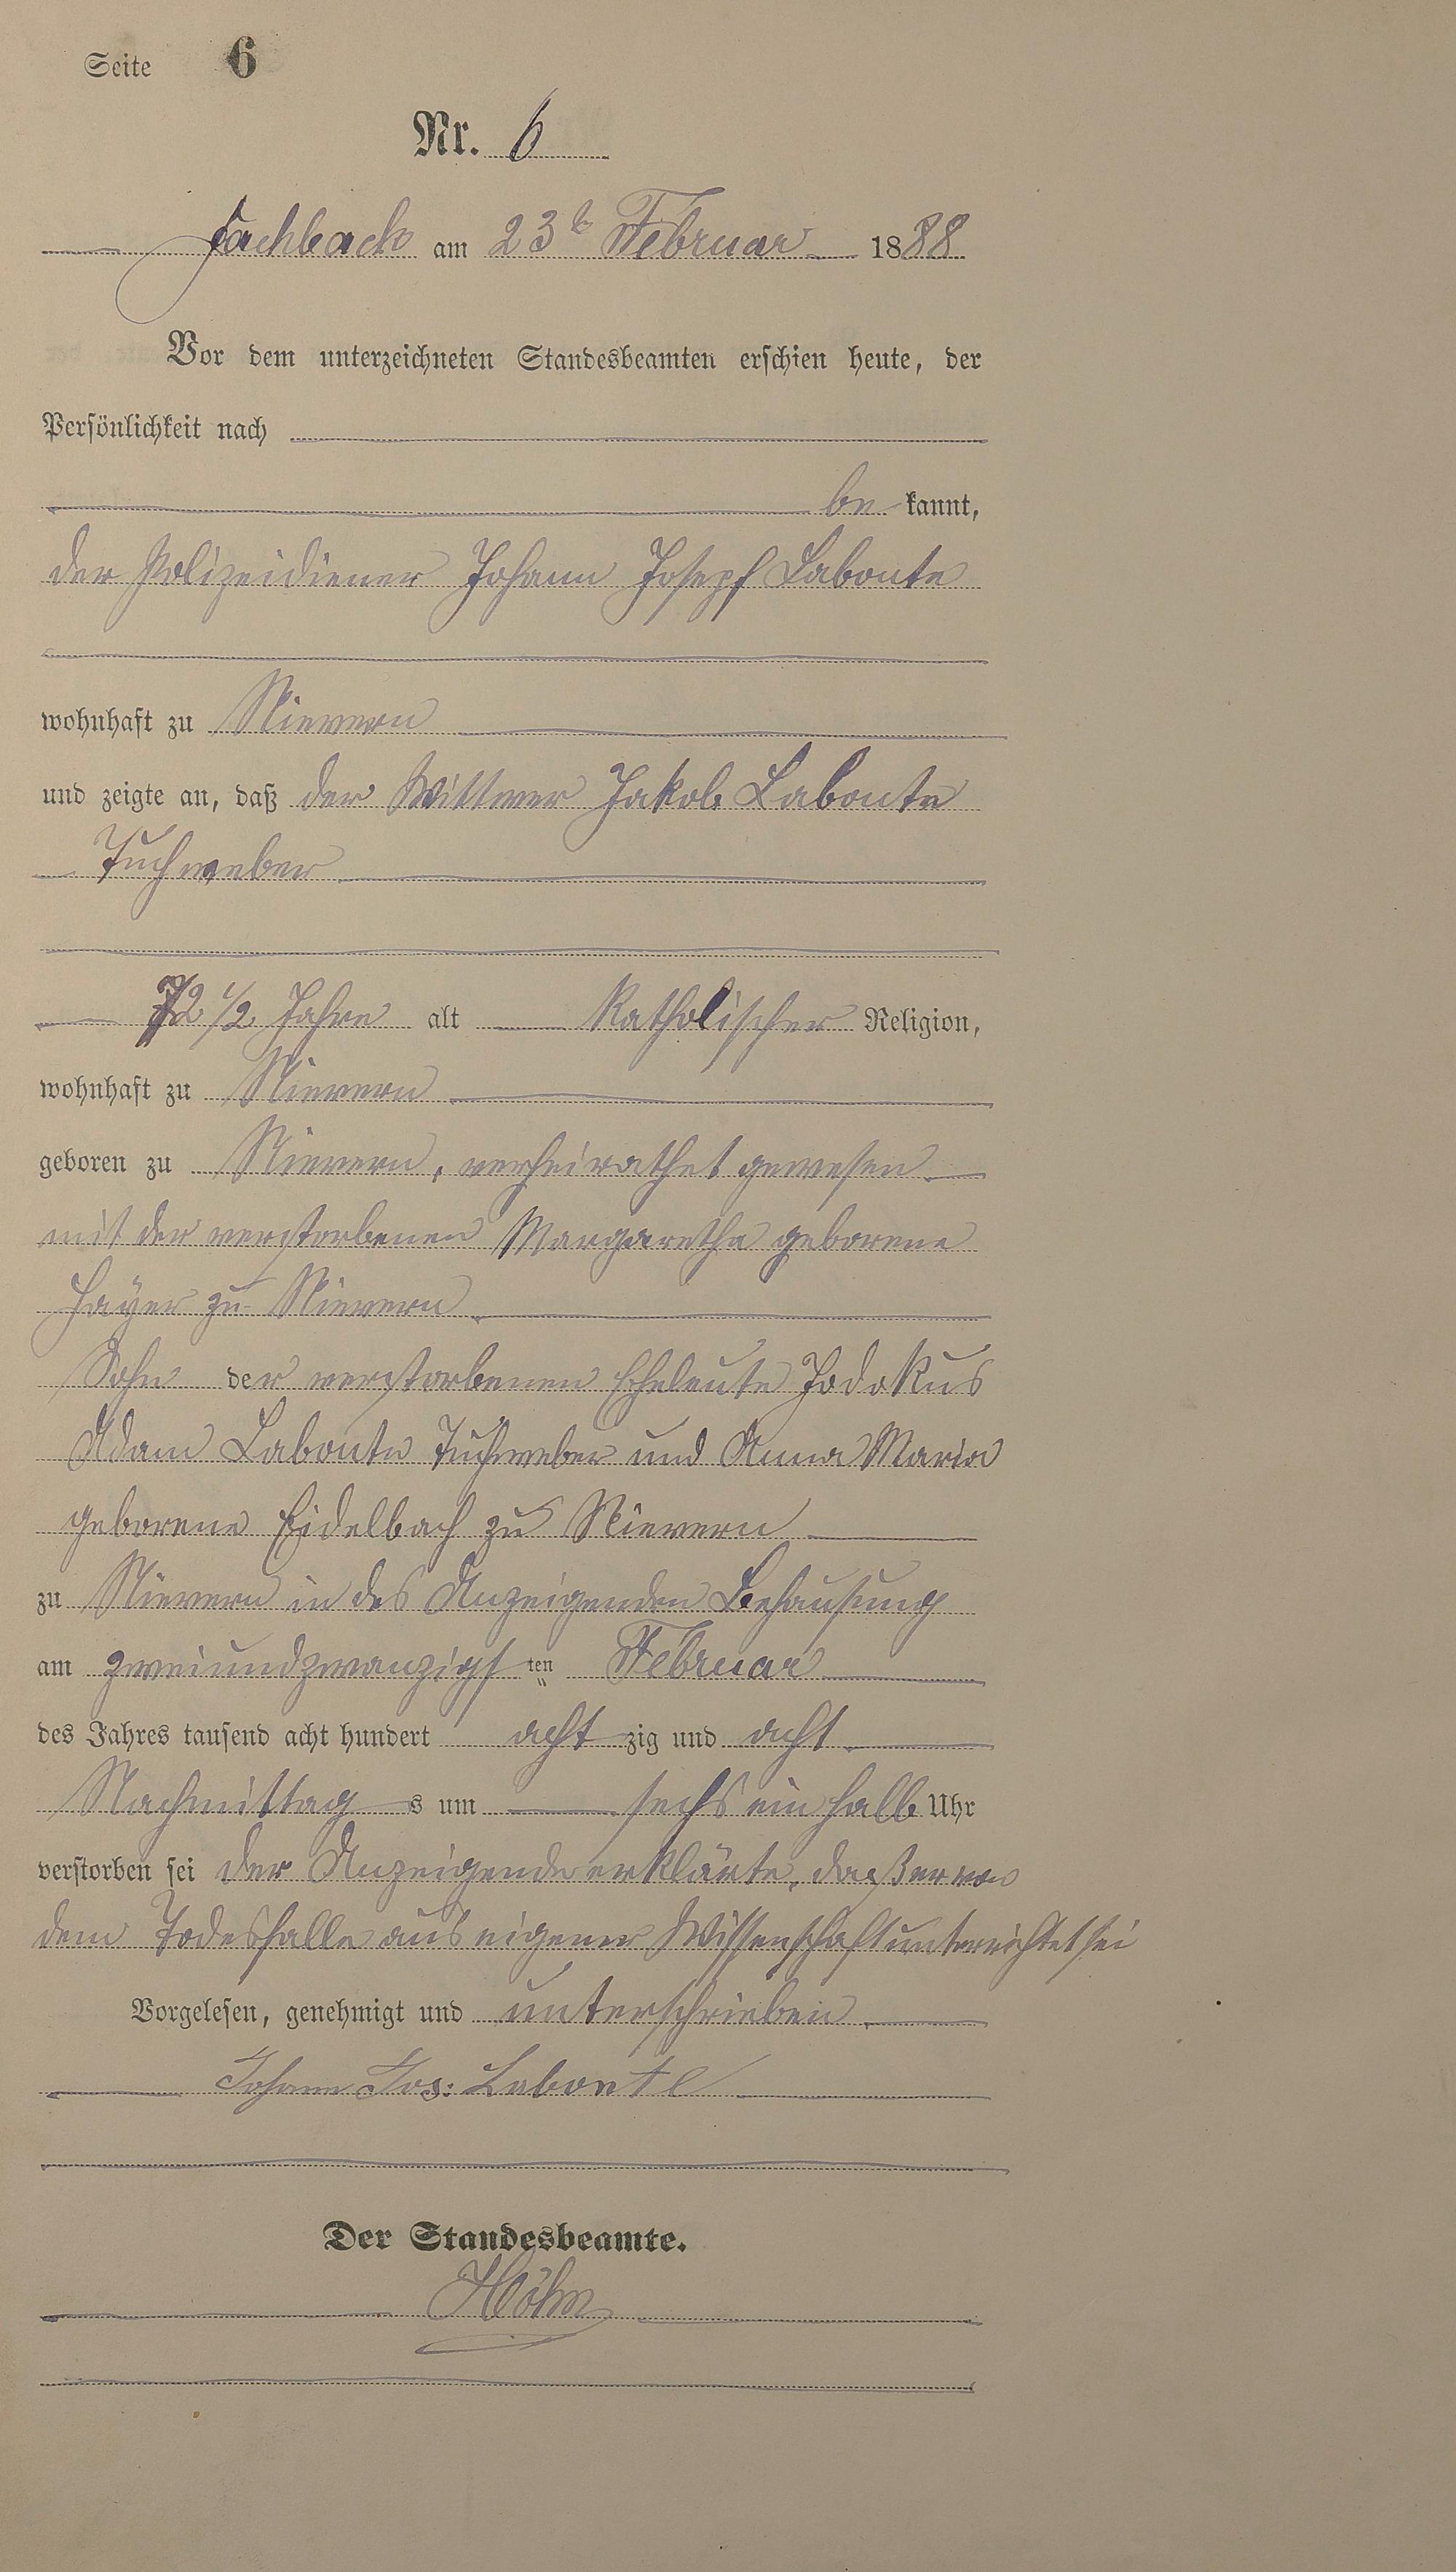 Seite 6
Nr. 6
Fachbach am 23t Februar 1888
Vor dem unterzeichneten Standesbeamten erschien heute, der
Persönlichkeit nach
be kannt,
der Polizeidiener Johann Josepf Labonte
wohnhaft zu Nievern
und zeigte an, daß der Wittwer Jakob Labonte
Tuchweber
72 1/2 Jahre alt Katholischer Religion,
wohnhaft zu Nievern
geboren zu Nievern, verheirathet gewesen
mit der verstorbenen Margaretha geborene
Hayer zu Nievern
Sohn der verstorbenen Eheleute Jodokus
Adam Labonte Tuchweber und Anna Maria
geborene Eidelbach zu Nievern
zu Nievern in des Anzeigenden Behausung
am zweiundzwanzigs ten Februar
des Jahres tausend acht hundert acht zig und acht
Nachmittag s um sechs ein halb Uhr
verstorben sei der Anzeigende erklärte, daß er von
dem Todesfalle aus eigener Wissenschaft unterrichtet sei
Vorgelesen, genehmigt und unterschrieben
Johann Jos: Labonte
Der Standesbeamte.